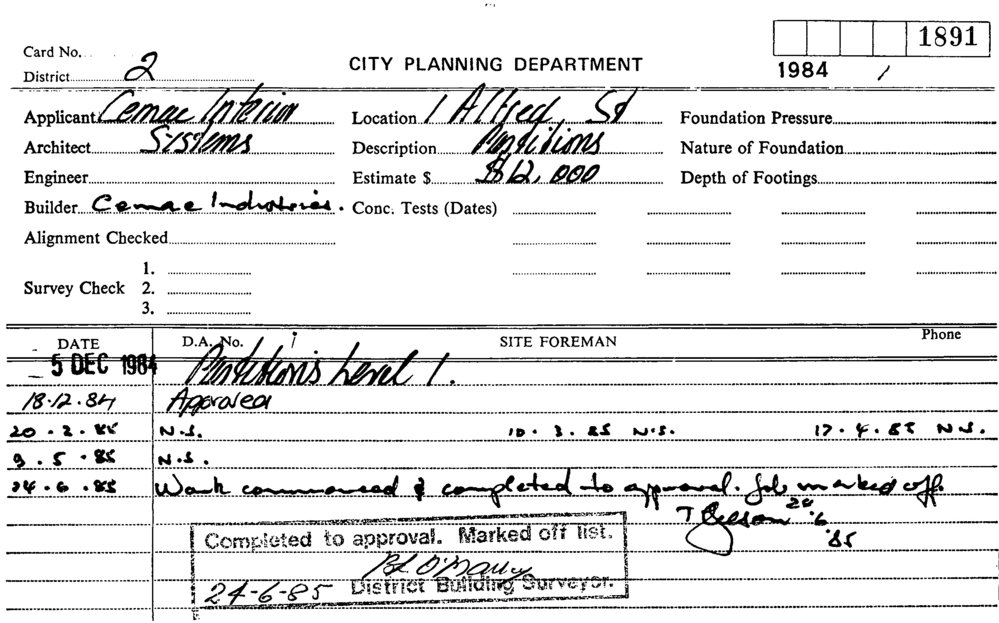 Card No.
1891
District 2
CITY PLANNING DEPARTMENT
1984 /
Applicant Cemac Interior
Location 1 Alfred St
Foundation Pressure
Architect Systems
Description Partitions
Nature of Foundation
Engineer
Estimate $ $12,000
Depth of Footings
Builder Cemac Industries.
Conc. Tests (Dates)
Alignment Checked
1.
Survey Check 2.
3.
DATE D.A. No. SITE FOREMAN Phone
- 5 DEC 1984 Partitions Level 1.
18.12.84 Approved
20.2.85 N.S. 10.3.85 N.S. 17.4.85 N.S.
9.5.85 N.S.
24.6.85 Work commenced & completed to approval. Job marked off.
24.6.85
Completed to approval. Marked off list.
24-6-85 District Building Surveyor.